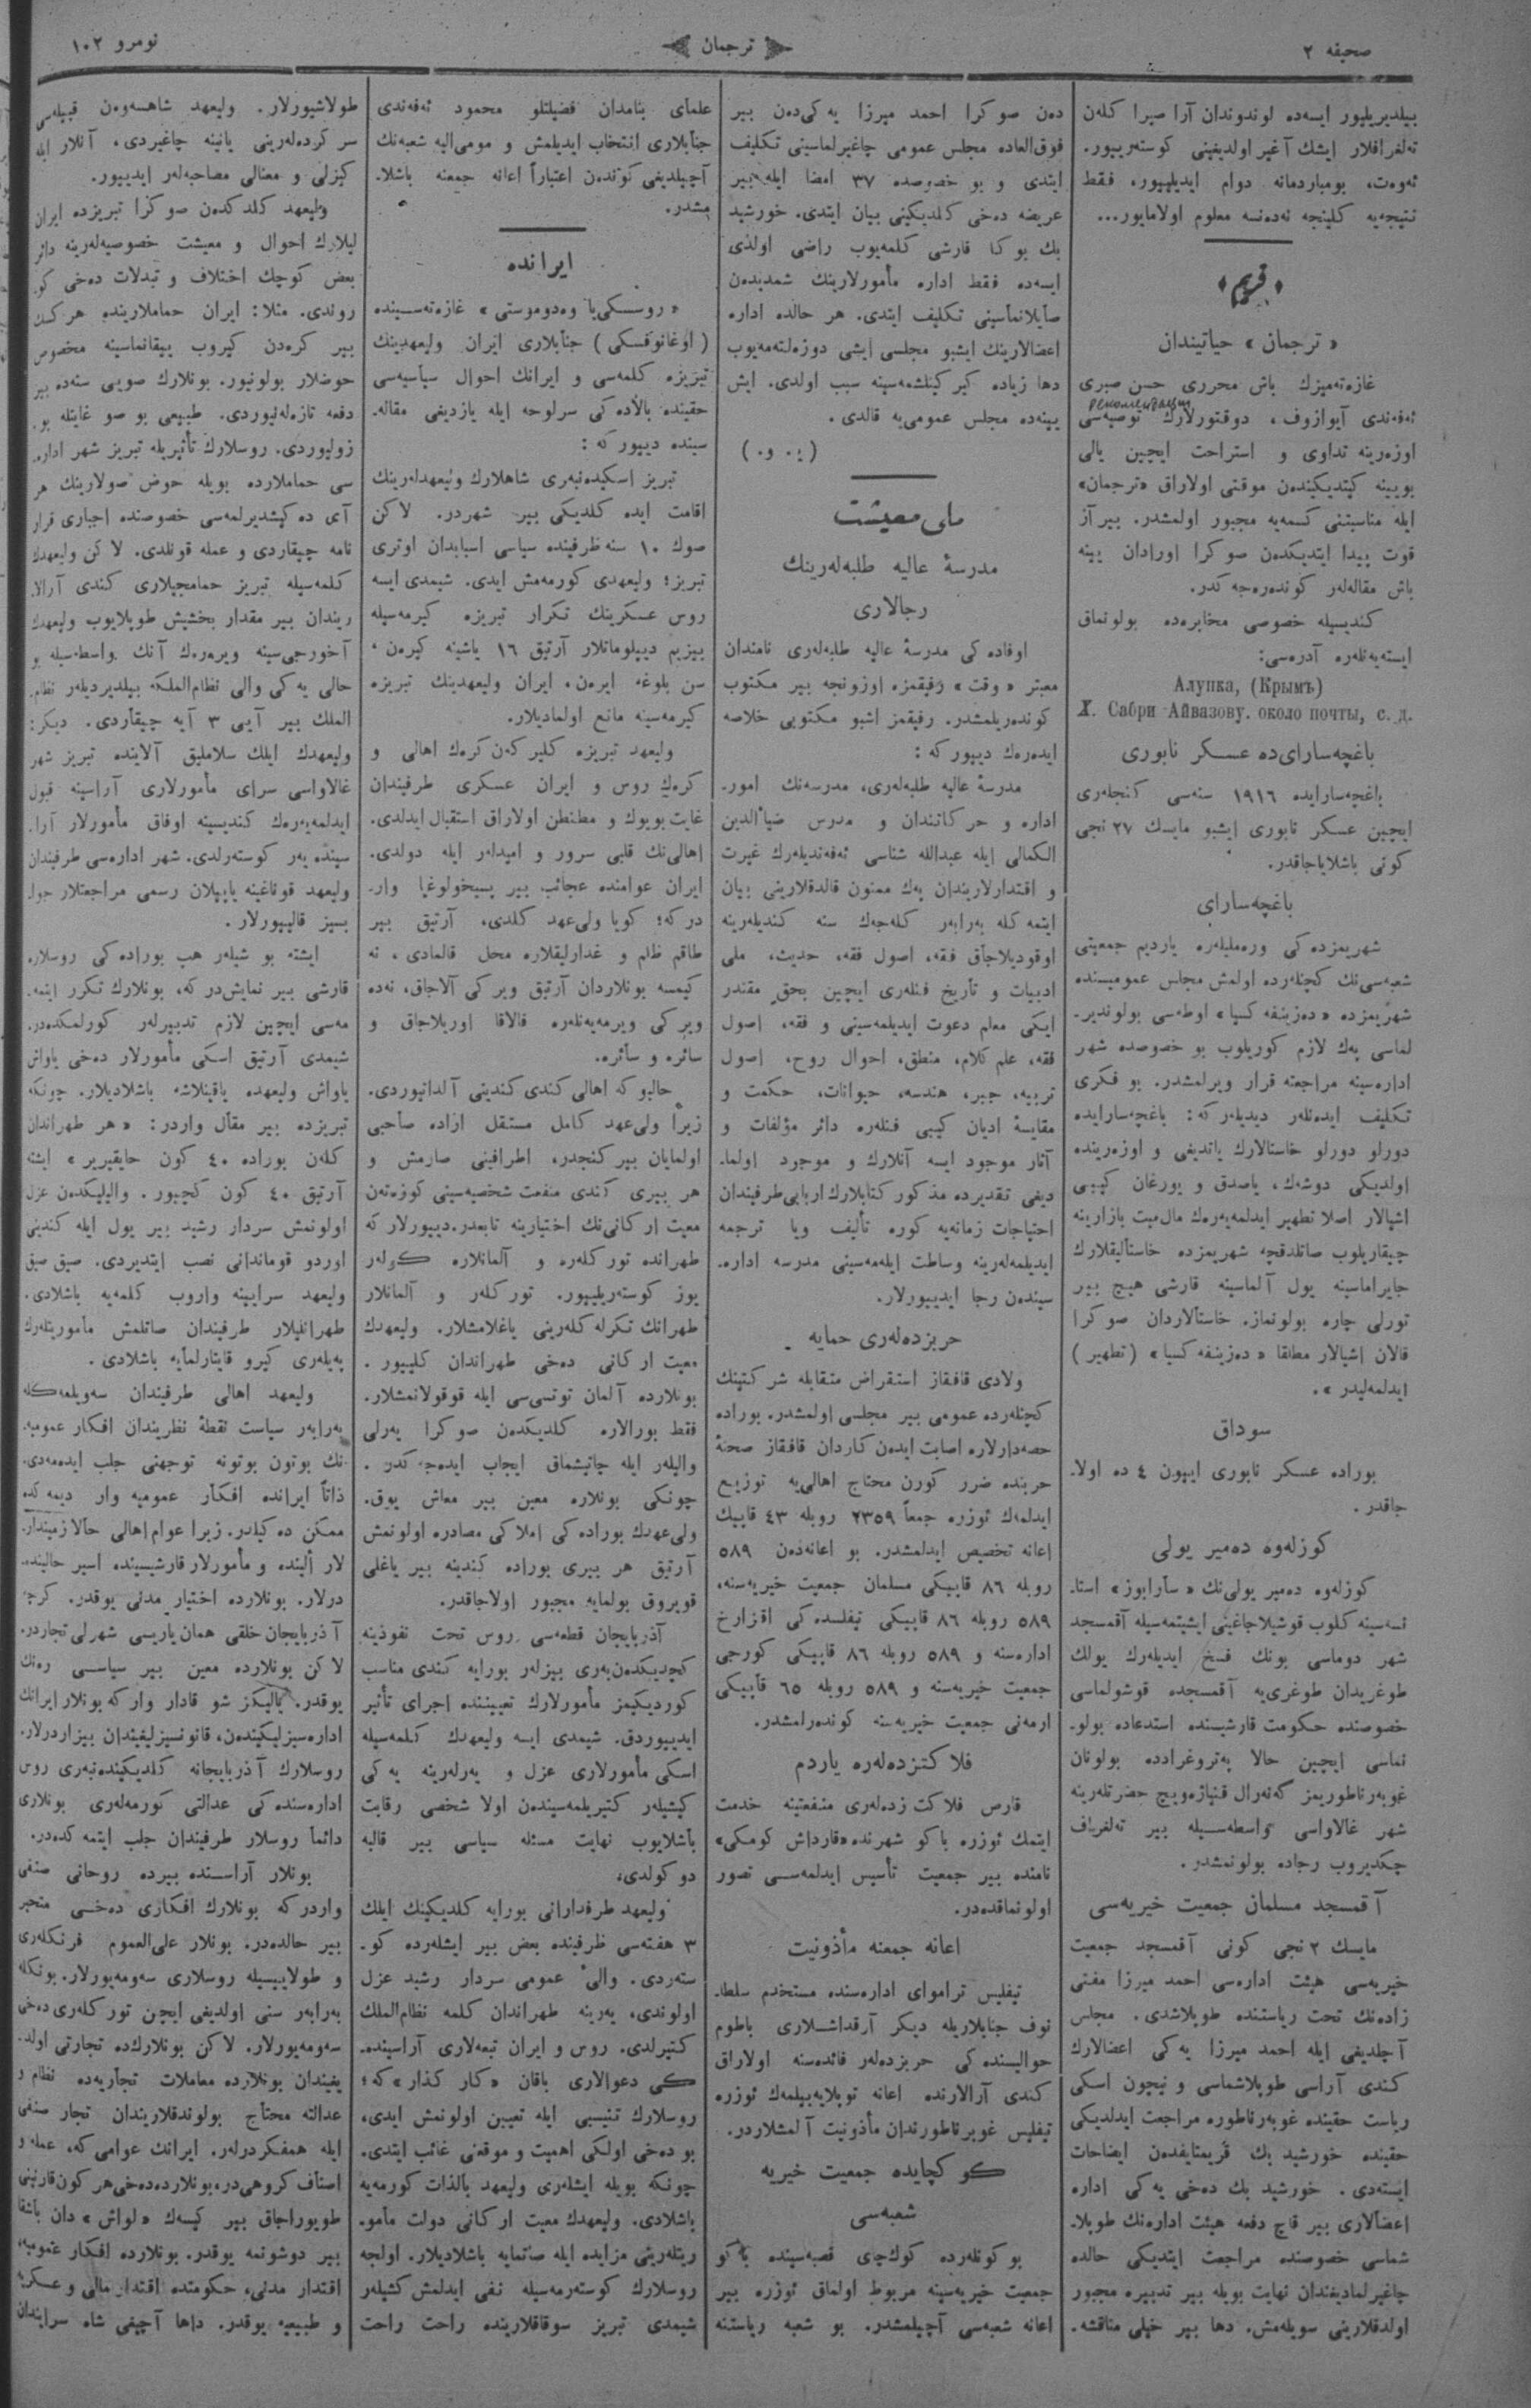 صحیفه ٢
ترجمان
نومرو ١٠٢
بیلدیریلیور ایسه‌ده لوندوندان آرا صیرا کلەن
تەلغرافلار ایشك آغیر اولدیغینی کوستەریبور.
ئەوەت، بومباردمانه دوام ایدیلیبور، فقط
نتیجه‌یه کلینجه نەدەنسه معلوم اولامایور...
﴿ قریم ﴾
« ترجمان » حیاتیندان
غازەتەمیزك باش محرری حسن صبری
рекомендация
ئەفەندی آیوازوف، دوقتورلارك توصیه‌سی
اوزەرینه تداوی و استراحت ایچین یالی
بویینه کیتدیکیندەن موقتی اولاراق «ترجمان»
ایله مناسبتنی کسمەیه مجبور اولمشدر. بیر آز
قوت پیدا ایتدیکدەن صوکرا اورادان یینه
باش مقاله‌لەر کوندەرەجه‌کدر.
کندیسیله خصوصی مخابرەدە بولونماق
ایستەیەنلەره آدرەسی:
Алупка, (Крымъ)
Х. Сабри Айвазову. около почты, с. д.
باغچه‌سارای‌ده عسکر نابوری
باغچه‌سارایده ١٩١٦ سنه‌سی کنجلەری
ایچین عسکر نابوری ایشبو مایسك ٢٧ نجی
کونی باشلایاجاقدر.
باغچه‌سارای
شهریمزده‌کی ورەملیلەره یاردیم جمعیتی
شعبه‌سی‌نك کچنلەرده اولمش مجلس عمومیسنده
شهریمزده «دەزینفه‌کسیا» اوطه‌سی بولوندیر-
لماسی پەك لازم کوریلوب بو خصوصده شهر
اداره‌سینه مراجعته قرار ویرلمشدر. بو فکری
تکلیف ایدەنلەر دیدیلەر که: باغچه‌سارایده
دورلو دورلو خاستالارك یاتدیغی و اوزەرینده
اولدیکی دوشەك، یاصدق و یورغان کیبی
اشیالار اصلا تطهیر ایدلمەیەرەك مال‌میت بازارینه
چیقاریلوب صاتلدقجه شهریمزده خاستالیقلارك
جایراماسینه یول آلماسینه قارشی هیچ بیر
تورلی چاره بولونماز. خاستالاردان صوکرا
قالان اشیالار مطلقا «دەزینفه‌کسیا» (تطهیر)
ایدلمەلیدر».
سوداق
بوراده عسکر نابوری ایبون ٤ ده اولا-
جاقدر.
کوزلەوه دەمیر یولی
کوزلەوه دەمیر یولی‌نك «سارابوز» استا-
نسه‌سینه کلوب قوشیلاجاغینی ایشیتمه‌سیله آقمسجد
شهر دوماسی بونك فسخ ایدیلەرك یولك
طوغریدان طوغری‌یه آقمسجده قوشولماسی
خصوصنده حکومت قارشیسنده استدعاده بولو-
نماسی ایچین حالا پەتروغرادده بولونان
غوبەرناطوریمز گەنەرال قنیازەویچ حضرتلەرینه
شهر غالاواسی واسطه‌سیله بیر تەلغراف
چکدیروب رجاده بولونمشدر.
آقمسجد مسلمان جمعیت خیریه‌سی
مایسك ٢ نجی کونی آقمسجد جمعیت
خیریه‌سی هیئت اداره‌سی احمد میرزا مفتی
زاده‌نك تحت ریاستنده طوبلاشدی. مجلس
آچلدیغی ایله احمد میرزا یەکی اعضالارك
کندی آراسی طوبلاشماسی و نیچون اسکی
ریاست حقینده غوبەرناطوره مراجعت ایدلدیکی
حقینده خورشید بك قریمتایفدەن ایضاحات
ایستەدی. خورشید بك دەخی یەکی اداره
اعضالاری بیر قاچ دفعه هیئت اداره‌نك طوبلا-
شماسی خصوصنده مراجعت ایتدیکی حالده
چاغیرلمادیغندان نهایت بویله بیر تدبیره مجبور
اولدقلارینی سویلەمش. دها بیر خیلی مناقشه.
دەن صوکرا احمد میرزا یەکی‌دەن بیر
فوق‌العاده مجلس عمومی چاغیرلماسینی تکلیف
ایتدی و بو خصوصده ٣٧ امضا ایله بیر
عریضه دەخی کلدیکینی بیان ایتدی. خورشید
بك بوکا قارشی کلمەیوب راضی اولدی
ایسه‌ده فقط اداره مأمورلارینك شمدیدەن
صایلانماسینی تکلیف ایتدی. هر حالده اداره
اعضالارینك ایشبو مجلسی ایشی دوزەلتەمەیوب
دها زیاده کیرکینلشمه‌سینه سبب اولدی. ایش
یینەده مجلس عمومی‌یه قالدی.
(ی. و.)
مای معیشت
مدرسۀ عالیه طلبه‌لەرینك
رجالاری
اوفاده‌کی مدرسۀ عالیه طلبه‌لەری نامندان
معتبر «وقت» رفیقمزه اوزونجه بیر مکتوب
کوندەریلمشدر. رفیقمز اشبو مکتوبی خلاصه
ایدەرەك دیبور که:
مدرسۀ عالیه طلبه‌لەری، مدرسه‌نك امور-
اداره و حرکاتندان و مدرس ضیاءالدین
الکمالی ایله عبدالله شناسی ئەفەندیلەرك غیرت
و اقتدارلاریندان پەك ممنون قالدقلارینی بیان
ایتمه‌کله بەرابەر کلەجەك سنه کندیلەرینه
اوقودیلاجاق فقه، اصول فقه، حدیث، ملی
ادبیات و تأریخ فنلەری ایچین بحق مقتدر
ایکی معلم دعوت ایدیلمه‌سینی و فقه، اصول
فقه، علم کلام، منطق، احوال روح، اصول
تربیه، جبر، هندسه، حیوانات، حکمت و
مقایسۀ ادیان کیبی فنلەره دائر مؤلفات و
آثار موجود ایسه آنلارك و موجود اولما-
دیغی تقدیرده مذکور کتابلارك اربابی‌طرفیندان
احتیاجات زمانه‌یه کوره تألیف ویا ترجمه
ایدیلمه‌لەرینه وساطت ایلەمه‌سینی مدرسه اداره-
سیندەن رجا ایدیبورلار.
حربزده‌لەری حمایه
ولادی قافقاز استقراض متقابله شرکتینك
کچنلەرده عمومی بیر مجلسی اولمشدر. بوراده
حصه‌دارلاره اصابت ایدەن کاردان قافقاز صحنۀ
حربنده ضرر کورن محتاج اهالی‌یه توزیع
ایدلمەك ئوزره جمعاً ٢٣٥٩ روبله ٤٣ قاپیك
اعانه تخصیص ایدلمشدر. بو اعانەدەن ٥٨٩
روبله ٨٦ قاپیکی مسلمان جمعیت خیریه‌سنه،
٥٨٩ روبله ٨٦ قاپیکی تیفلسده‌کی اقزارخ
اداره‌سنه و ٥٨٩ روبله ٨٦ قاپیکی کورجی
جمعیت خیریه‌سنه و ٥٨٩ روبله ٦٥ قاپیکی
ارمەنی جمعیت خیریه‌سنه کوندەرلمشدر.
فلاکتزده‌لەره یاردم
قارص فلاکت زده‌لەری منفعتینه خدمت
ایتمك ئوزره باکو شهرنده «قارداش کومکی»
نامنده بیر جمعیت تأسیس ایدلمه‌سی تصور
اولونماقده‌در.
اعانه جمعنه مأذونیت
تیفلیس تراموای اداره‌سنده مستخدم سلطا-
نوف جنابلاریله دیکر آرقداشلاری باطوم
حوالیسنده‌کی حربزده‌لەر فائده‌سنه اولاراق
کندی آرالارنده اعانه توبلایەبیلمەك ئوزره
تیفلیس غوبرناطورندان مأذونیت آلمشلاردر.
کوکچایده جمعیت خیریه
شعبه‌سی
بو کونلەرده کوك‌چای قصبه‌سینده باکو
جمعیت خیریه‌سینه مربوط اولماق ئوزره بیر
اعانه شعبه‌سی آچیلمشدر. بو شعبه ریاستنه
علمای بنامدان فضیلتلو محمود ئەفەندی
جنابلاری انتخاب ایدیلمش و مومی‌الیه شعبه‌نك
آچیلدیغی کوندەن اعتباراً اعانه جمعنه باشلا-
مشدر.
ایرانده
«روسسکی‌یا وەدوموستی» غازەتەسینده
(اوغانوفسکی) جنابلاری ایران ولیعهدینك
تبریزه کلمه‌سی و ایرانك احوال سیاسیه‌سی
حقینده بالاده‌کی سرلوحه ایله یازدیغی مقاله-
سینده دیبور که:
تبریز اسکیدەنبەری شاهلارك ولیعهدلەرینك
اقامت ایده کلدیکی بیر شهردر. لاکن
صوك ١٠ سنه ظرفینده سیاسی اسبابدان اوتری
تبریز؛ ولیعهدی کورمەمش ایدی. شیمدی ایسه
روس عسکرینك تکرار تبریزه کیرمه‌سیله
بیزیم دیپلوماتلار آرتیق ١٦ یاشینه کیرەن،
سن بلوغه ایرەن، ایران ولیعهدینك تبریزه
کیرمه‌سینه مانع اولمادیلار.
ولیعهد تبریزه کلیرکەن کرەك اهالی و
کرەك روس و ایران عسکری طرفیندان
غایت بویوك و مطنطن اولاراق استقبال ایدلدی.
اهالی‌نك قلبی سرور و امیدلەر ایله دولدی.
ایران عوامنده عجائب بیر پسیخولوغیا وار-
درکه؛ کویا ولی‌عهد کلدی، آرتیق بیر
طاقم ظلم و غدارلیقلاره محل قالمادی، نه
کیمسه بونلاردان آرتیق ویرکی آلاجاق، نەده
ویرکی ویرمەیەنلەره فالاقا اوریلاجاق و
سائره و سائره.
حالبوکه اهالی کندی کندینی آلداتیوردی.
زیرا ولی‌عهد کامل مستقل اراده صاحبی
اولمایان بیر کنجدر، اطرافینی صارمش و
هر بیری کندی منفعت شخصیه‌سینی کوزەتەن
معیت ارکانی‌نك اختیارینه تابعدر. دیبورلار که
طهرانده تورکلەره و آلمانلاره کولەر
یوز کوستەریلیبور. تورکلەر و آلمانلار
طهرانك تکرلەکلەرینی یاغلامشلار. ولیعهدك
معیت ارکانی دەخی طهراندان کلیبور.
بونلارده آلمان توتسی‌سی ایله قوقولانمشلار.
فقط بورالاره کلدیکدەن صوکرا یەرلی
والیلەر ایله چاتیشماق ایجاب ایدەجەکدر.
چونکی بونلاره معین بیر معاش یوق.
ولی‌عهدك بوراده‌کی املاکی مصادره اولونمش
آرتیق هر بیری بوراده کندینه بیر یاغلی
قویروق بولمایه مجبور اولاجاقدر.
آذربایجان قطعه‌سی روس تحت نفوذینه
کچدیکدەن‌بەری بیزلەر بورایه کندی مناسب
کوردیکیمز مأمورلارك تعییننده اجرای تأثیر
ایدیبوردق. شیمدی ایسه ولیعهدك کلمه‌سیله
اسکی مأمورلاری عزل و یەرلەرینه یەکی
کیشیلەر کتیریلمه‌سیندەن اولا شخصی رقابت
باشلایوب نهایت مسئله سیاسی بیر قالبه
دوکولدی،
ولیعهد طرفدارانی بورایه کلدیکینك ایلك
٣ هفته‌سی ظرفینده بعض بیر ایشلەرده کو-
ستەردی. والی عمومی سردار رشید عزل
اولوندی، یەرینه طهراندان کلمه نظام‌الملك
کتیرلدی. روس و ایران تبعه‌لاری آراسینده-
کی دعوالاری باقان «کار کذار» که؛
روسلارك تنیسبی ایله تعیین اولونمش ایدی،
بو دەخی اولکی اهمیت و موقعنی غائب ایتدی.
چونکه بویله ایشلەری ولیعهد بالذات کورمەیه
باشلادی. ولیعهدك معیت ارکانی دولت مأمو-
ریتلەرینی مزایده ایله صاتمایه باشلادیلار. اولجه
روسلارك کوستەرمه‌سیله نفی ایدلمش کشیلەر
شیمدی تبریز سوقاقلارینده راحت راحت
طولاشیورلار. ولیعهد شاهسەوەن قبیله‌سی
سرکردەلەرینی یانینه چاغیردی، آنلار ایله
کیزلی و معنالی مصاحبه‌لەر ایدیبور.
ولیعهد کلدکدەن صوکرا تبریزده ایران
لیلارك احوال و معیشت خصوصیه‌لەرینه دائر
بعض کوچك اختلاف و تبدلات دەخی کو-
روندی. مثلا: ایران حماملارینده هر کسك
بیر کرەدن کیروب ییقانماسینه مخصوص
حوضلار بولونیور. بونلارك صویی سنەده بیر
دفعه تازەلەنیوردی. طبیعی بو صو غایتله بو-
زولیوردی. روسلارك تأثیریله تبریز شهر اداره-
سی حماملارده بویله حوض صولارینك هر
آی ده‌کیشدیرلمه‌سی خصوصنده اجباری قرار
نامه چیقاردی و عمله قونلدی. لاکن ولیعهدك
کلمه‌سیله تبریز حمامجیلاری کندی آرالا-
ریندان بیر مقدار بخشیش طوبلایوب ولیعهدك
آخورجی‌سینه ویرەرەك آنك واسطه‌سیله بو
حالی یەکی والی نظام‌الملکه بیلدیردیلەر. نظام-
الملك بیر آیی ٣ آیه چیقاردی. دیکر:
ولیعهدك ایلك سلاملیق آلاینده تبریز شهر
غالاواسی سرای مأمورلاری آراسینه قبول
ایدلمەیەرەك کندیسینه اوفاق مأمورلار آرا-
سینده یەر کوستەرلدی. شهر اداره‌سی طرفیندان
ولیعهد قوناغینه یاپیلان رسمی مراجعتلار جوا-
بسیز قالیبورلار.
ایشته بو شیلەر هب بوراده‌کی روسلاره
قارشی بیر نمایش‌درکه، بونلارك تکرر ایتمه-
مه‌سی ایچین لازم تدبیرلەر کورلمکده‌در.
شیمدی آرتیق اسکی مأمورلار دەخی یاواش
یاواش ولیعهده یاقینلاشه باشلادیلار. چونکه
تبریزده بیر مقال واردر: «هر طهراندان
کلەن بوراده ٤٠ کون حایقیریر» ایشته
آرتیق ٤٠ کون کچیور. والیلیکدەن عزل
اولونمش سردار رشید بیر یول ایله کندینی
اوردو قوماندانی نصب ایتدیردی. صیق صیق
ولیعهد سرایینه واروب کلمەیه باشلادی.
طهرانلیلار طرفیندان صاتلمش مأموریتلەرك
پەیلەری کیرو قایتارلمایه باشلادی.
ولیعهد اهالی طرفیندان سەویلمەکله
بەرابەر سیاست نقطۀ نظریندان افکار عمومیه-
نك بوتون بوتونه توجهنی جلب ایدەمەدی.
ذاتاً ایرانده افکار عمومیه وار دیمەکده
ممکن ده‌کیلدر. زیرا عوام اهالی حالا زمیندار-
لار الینده و مأمورلار قارشیسینده اسیر حالینده-
درلار. بونلارده اختیار مدنی یوقدر. کرچه
آذربایجان خلقی همان یاریسی شهرلی تجاردر.
لاکن بونلارده معین بیر سیاسی رەنك
یوقدر. یالیکز شو قادار وارکه بونلار ایرانك
اداره‌سیزلیکیندەن، قانونسیزلیغیندان بیزاردرلار.
روسلارك آذربایجانه کلدیکیندەنبەری روس
اداره‌سنده‌کی عدالتی کورمه‌لەری بونلاری
دائما روسلار طرفیندان جلب ایتمه‌کده‌در.
بونلار آراسنده بیرده روحانی صنفی
واردرکه بونلارك افکاری دەخی متحیر
بیر حالده‌در. بونلار علی‌العموم فرنکلەری
و طولاییسیله روسلاری سەومەیورلار. بونکله
بەرابەر سنی اولدیغی ایچن تورکلەری دەخی
سەومەیورلار. لاکن بونلارك‌ده تجارتی اولد-
یغیندان بونلارده معاملات تجاریه‌ده نظام و
عدالته محتاج بولوندقلاریندان تجار صنفی
ایله همفکردرلەر. ایرانك عوامی که، عمله و
اصناف کروهی‌در، بونلارده دەخی هر کون قارنینی
طویوراجاق بیر کیسەك «لواش» دان باشقا
بیر دوشونمه یوقدر. بونلارده افکار عمومیه،
اقتدار مدنی، حکومتده اقتدار مالی و عسکریه
و طبیعیه یوقدر. داها آچیغی شاه سرایندان